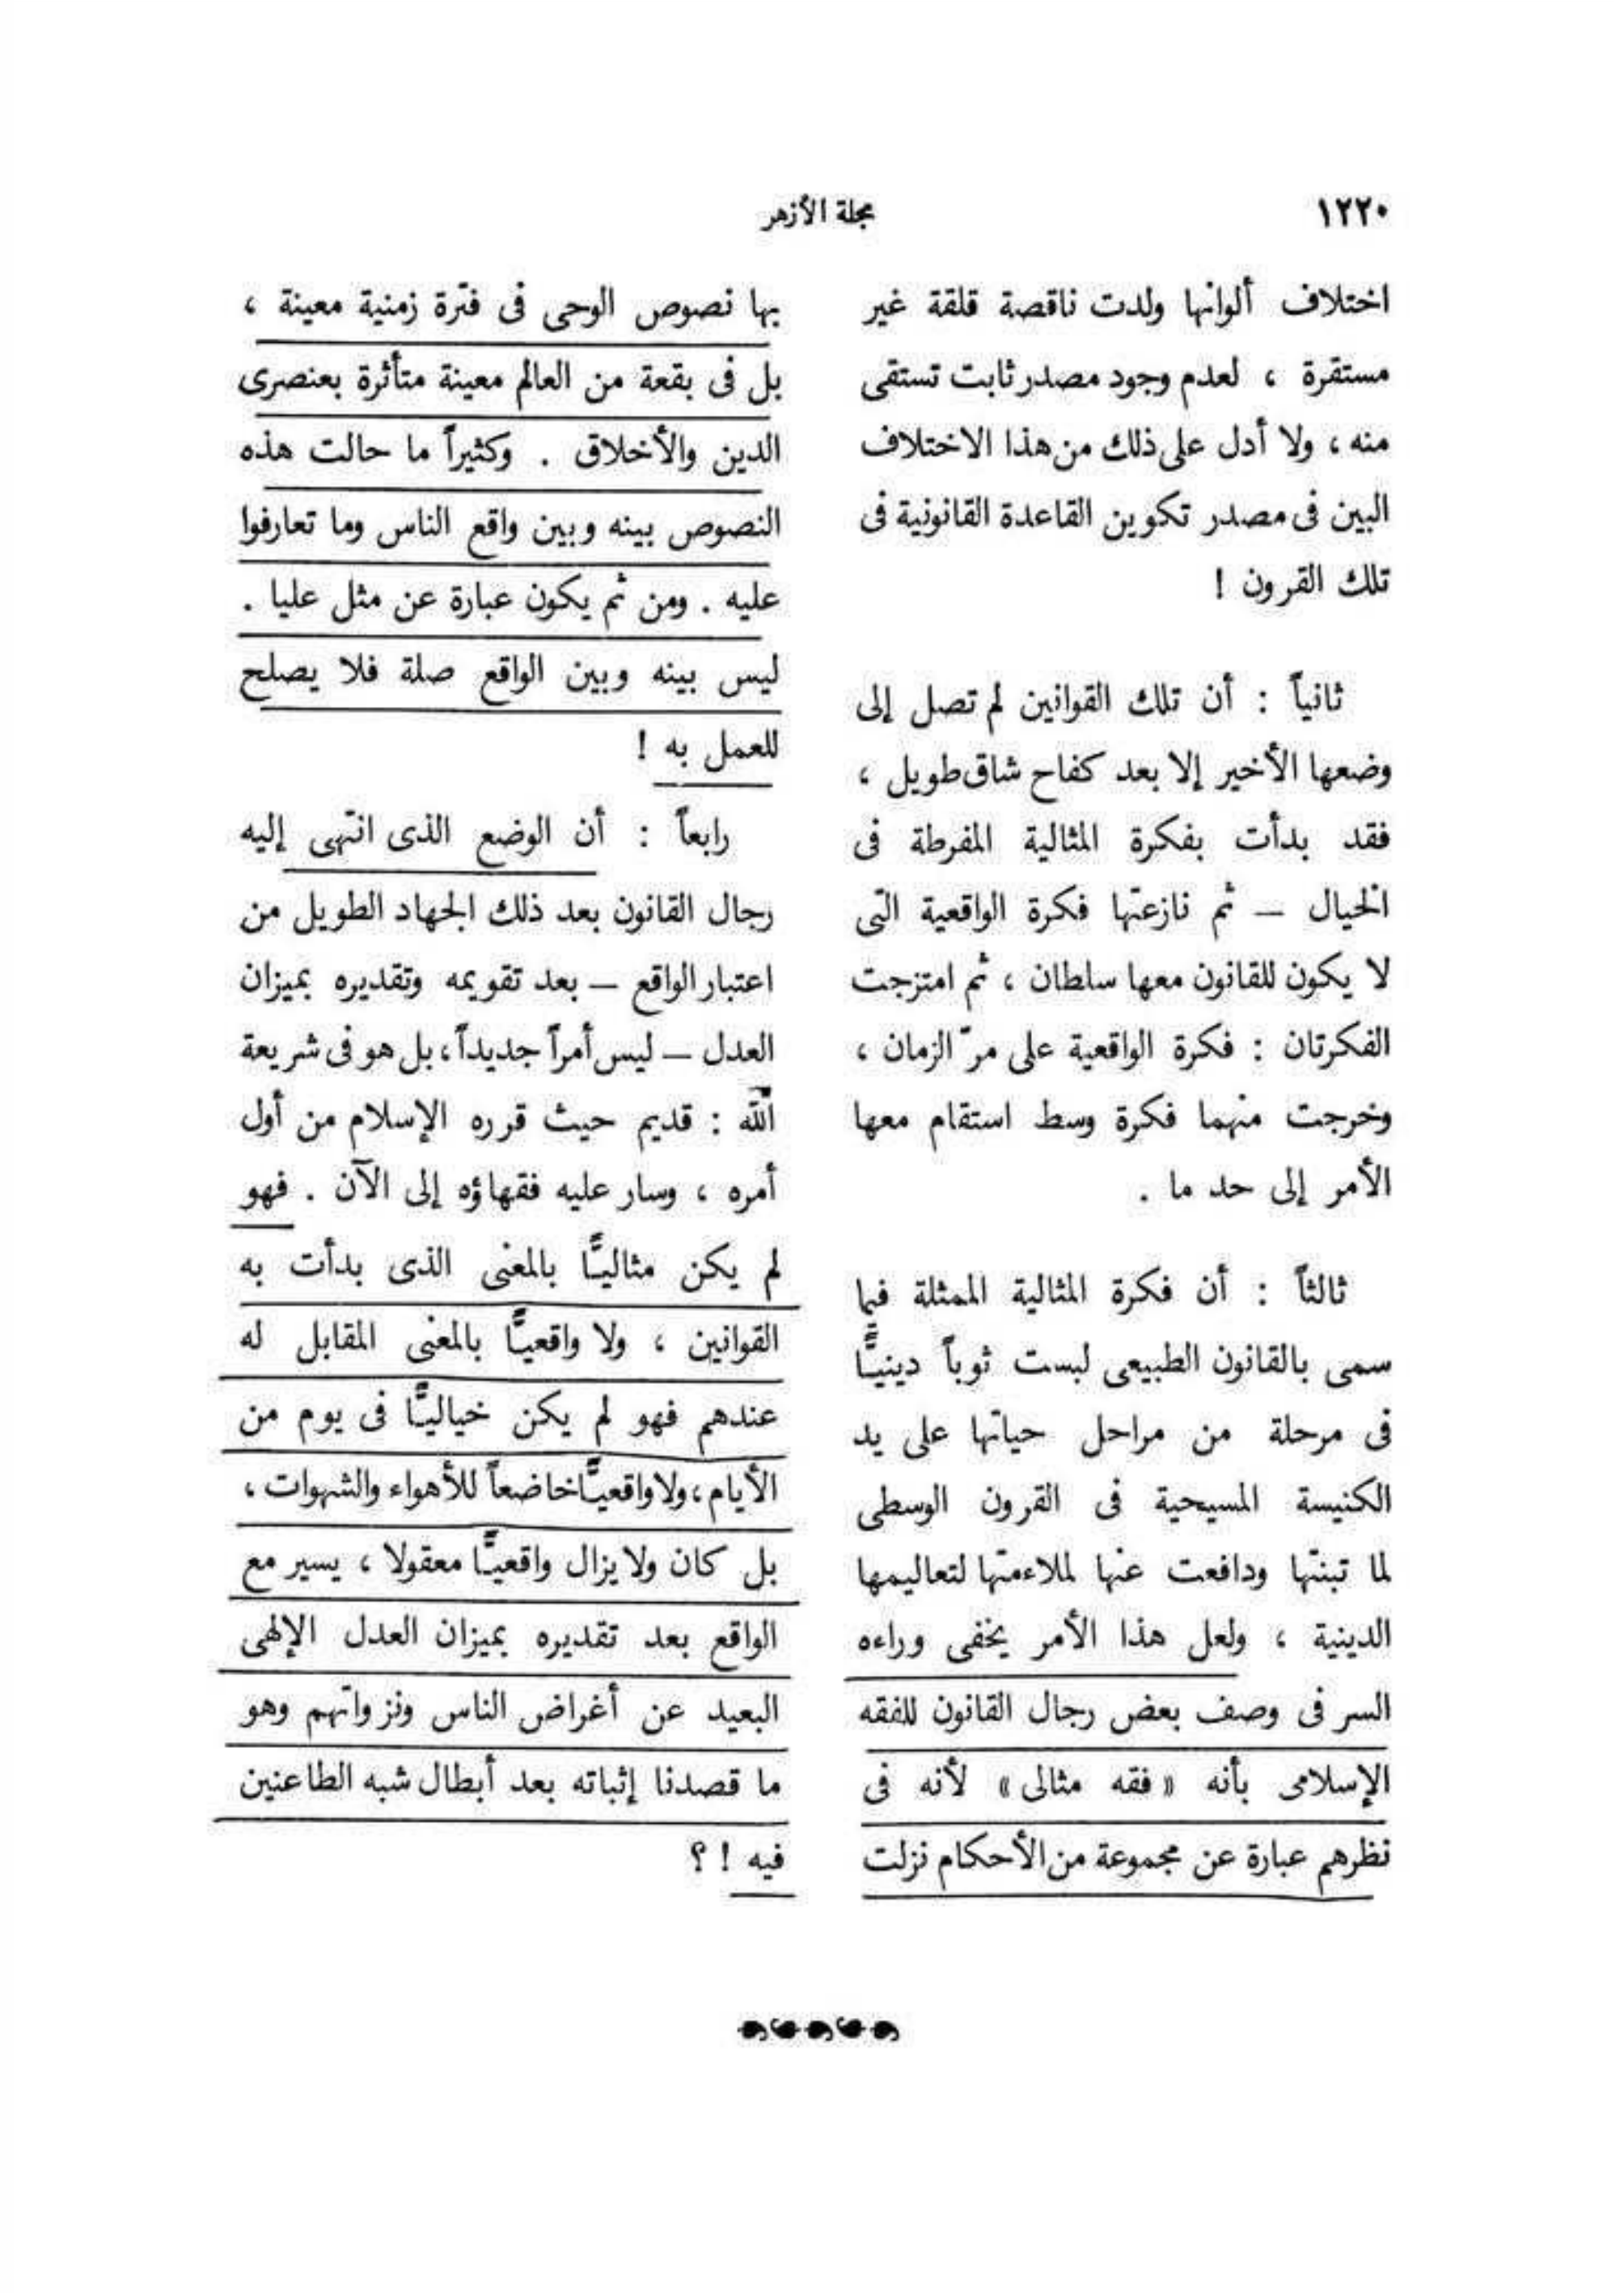 ١٢٢٠
مجلة الأزهر
اختلاف ألوانها ولدت ناقصة قلقة غير
مستقرة ، لعدم وجود مصدر ثابت تستقى
منه ، ولا أدل على ذلك من هذا الاختلاف
البين فى مصدر تكوين القاعدة القانونية فى
تلك القرون !
ثانياً : أن تلك القوانين لم تصل إلى
وضعها الأخير إلا بعد كفاح شاق طويل ،
فقد بدأت بفكرة المثالية المفرطة فى
الخيال — ثم نازعتها فكرة الواقعية التى
لا يكون للقانون معها سلطان ، ثم امتزجت
الفكرتان : فكرة الواقعية على مرّ الزمان ،
وخرجت منهما فكرة وسط استقام معها
الأمر إلى حد ما .
ثالثاً : أن فكرة المثالية الممثلة فيما
سمى بالقانون الطبيعى لبست ثوباً دينيًّا
فى مرحلة من مراحل حياتها على يد
الكنيسة المسيحية فى القرون الوسطى
لما تبنتها ودافعت عنها لملاءمتها لتعاليمها
الدينية ، ولعل هذا الأمر يخفى وراءه
السر فى وصف بعض رجال القانون للفقه
الإسلامى بأنه « فقه مثالى » لأنه فى
نظرهم عبارة عن مجموعة من الأحكام نزلت
بها نصوص الوحى فى فترة زمنية معينة ،
بل فى بقعة من العالم معينة متأثرة بعنصرى
الدين والأخلاق . وكثيراً ما حالت هذه
النصوص بينه وبين واقع الناس وما تعارفوا
عليه . ومن ثم يكون عبارة عن مثل عليا .
ليس بينه وبين الواقع صلة فلا يصلح
للعمل به !
رابعاً : أن الوضع الذى انتهى إليه
رجال القانون بعد ذلك الجهاد الطويل من
اعتبار الواقع — بعد تقويمه وتقديره بميزان
العدل — ليس أمراً جديداً ، بل هو فى شريعة
الله : قديم حيث قرره الإسلام من أول
أمره ، وسار عليه فقهاؤه إلى الآن . فهو
لم يكن مثاليًّا بالمعنى الذى بدأت به
القوانين ، ولا واقعيًّا بالمعنى المقابل له
عندهم فهو لم يكن خياليًّا فى يوم من
الأيام ، ولا واقعيًّا خاضعاً للأهواء والشهوات ،
بل كان ولا يزال واقعيًّا معقولا ، يسير مع
الواقع بعد تقديره بميزان العدل الإلهى
البعيد عن أغراض الناس ونزواتهم وهو
ما قصدنا إثباته بعد أبطال شبه الطاعنين
فيه ! ؟